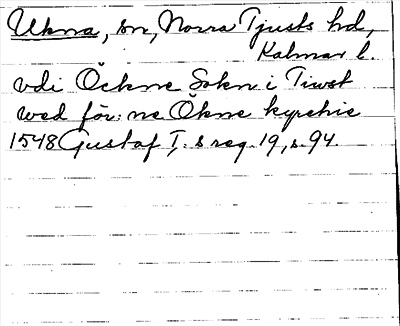 Ukna, sn, Norra Tjusts hd,
Kalmar l.
vdi Öckne Sokn i Tiwst
wed för: ne Ökne kyrchie
1548 Gustaf I:s reg. 19, s. 94.